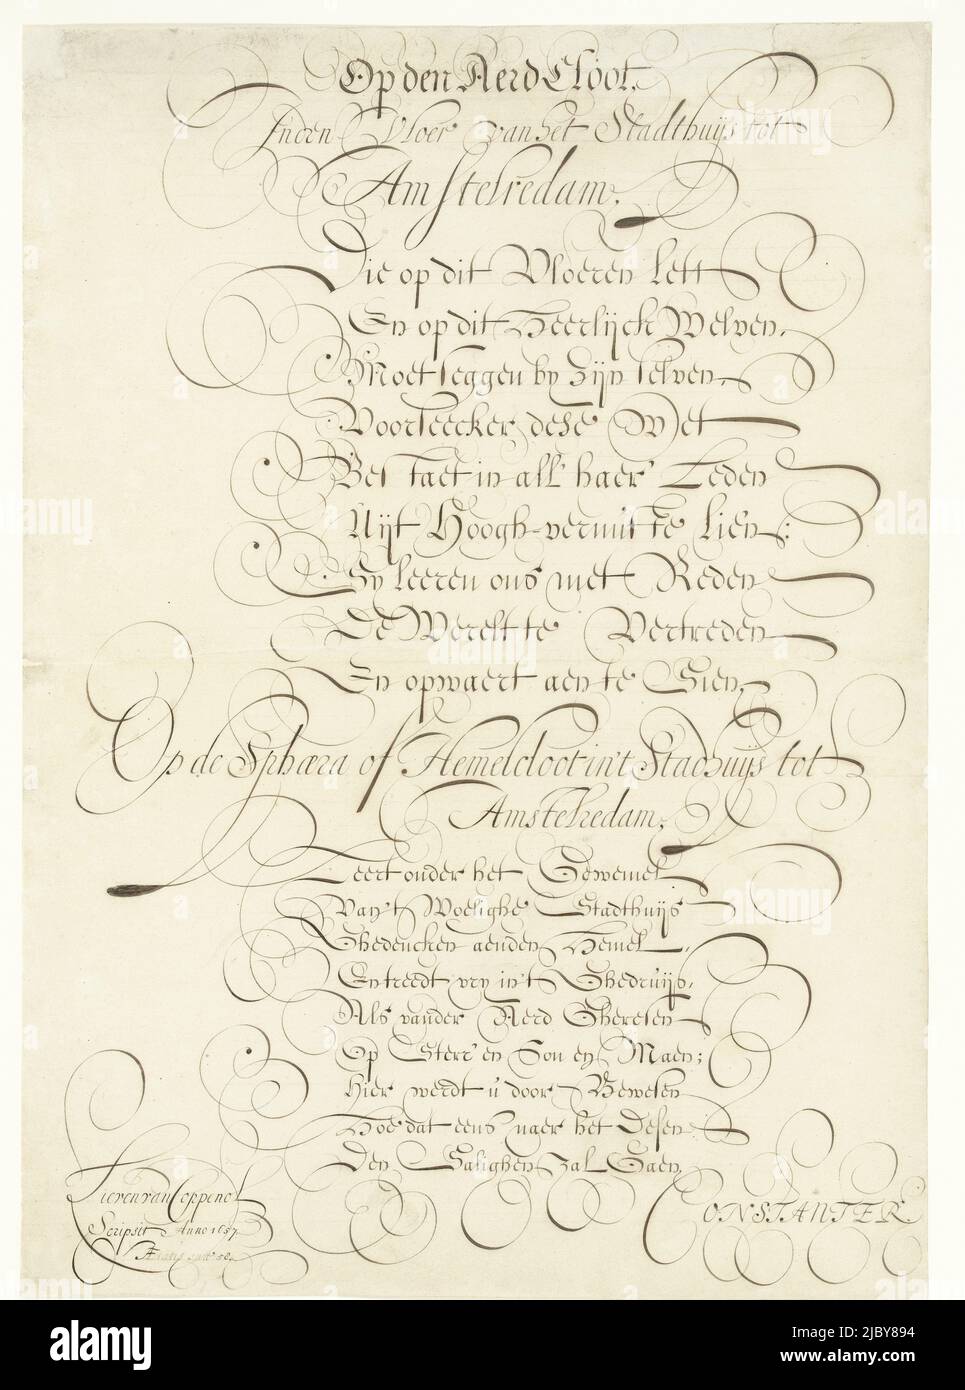 Op den Aerd Cloot,
Inden Vloer van het Stadthuijs tot
Amstelredam.
Die op dit Vloeren lett
En op dit Heerlijck Welven,
Moet seggen by zijn selven,
Voorseecker dese Wet
Bestaet in all haer Leden
Uijt Hoogh-vernufte lien:
Sy leeren ons met Reden
De Werelt te Vertreden
En opwaert aen te Sien.
Op de Sphæra of Hemelcloot in't Stadhuijs tot
Amstelredam.
Leert onder het Gewemel
Van't Woelighe Stadthuijs
Ghedencken aenden Hemel,
En treedt vry in't Ghedruijs,
Als vander Aerd Gheresen
Op Sterr en Son en Maen;
Hier werdt u door Bewesen
Hoe dat eens naer het Desen
Den Salighen zal Gaen.
Lieven van Coppenol
Scripsit Anno 1657.
Ætatis suæ 58.
CONSTANTER.
alamy
alamy
Image ID: 2JBY894
www.alamy.com